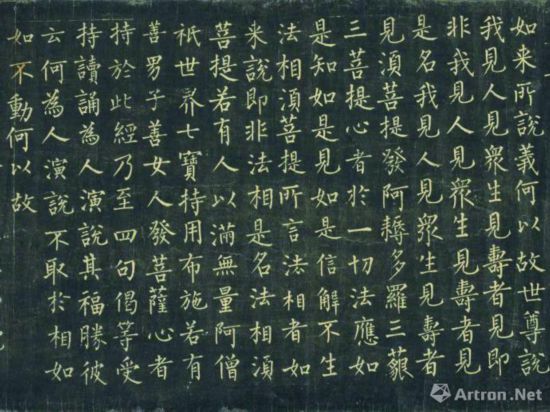 如来所說義何以故世尊說
我見人見衆生見壽者見即
非我見人見衆生見壽者見
是名我見人見衆生見壽者
見湏菩提發阿耨多羅三藐
三菩提心者於一切法應如
是知如是見如是信解不生
法相湏菩提所言法相者如
来說即非法相是名法相湏
菩提若有人以滿無量阿僧
祇世界七寶持用布施若有
善男子善女人發菩薩心者
持於此經乃至四句偈等受
持讀誦為人演說其福勝彼
云何為人演說不取於相如
如不動何以故
Artron.Net